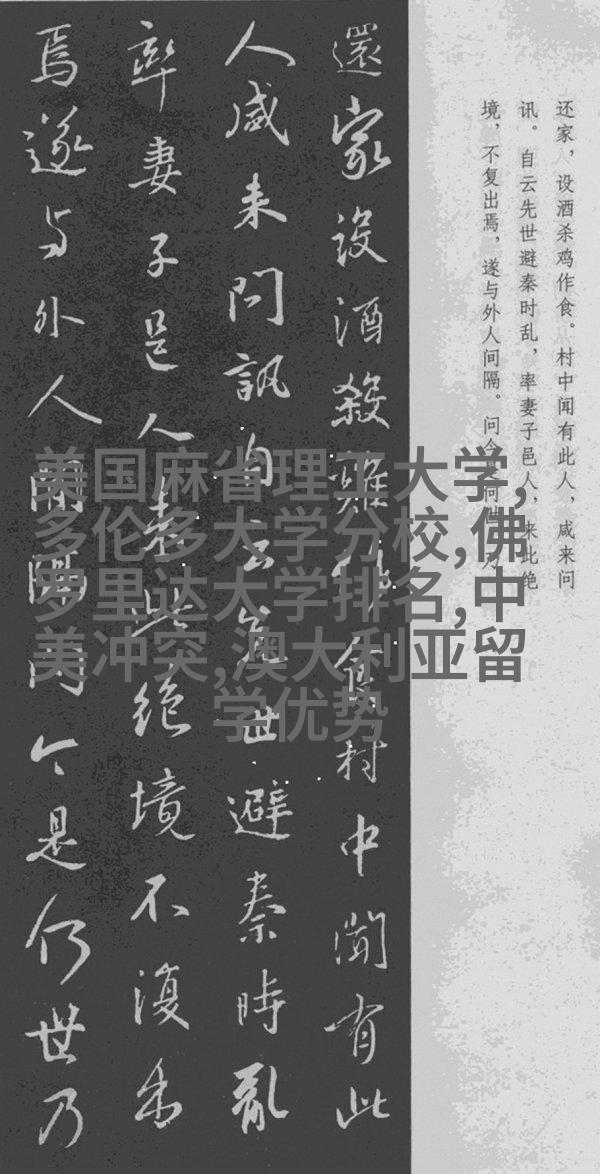 还家，设酒杀鸡作食。村中闻有此人，咸来问
讯。自云先世避秦时乱，率妻子邑人，来此绝
境，不复出焉，遂与外人间隔。问今是何世，乃
還家設酒殺雞作食村中聞有此
人咸来問訊自云先世避秦時亂
率妻子邑人来此絶境不復出
焉遂与外人間隔問今是何世乃
美国麻省理工大学,
多伦多大学分校,佛
罗里达大学排名,中
美冲突,澳大利亚留
学优势